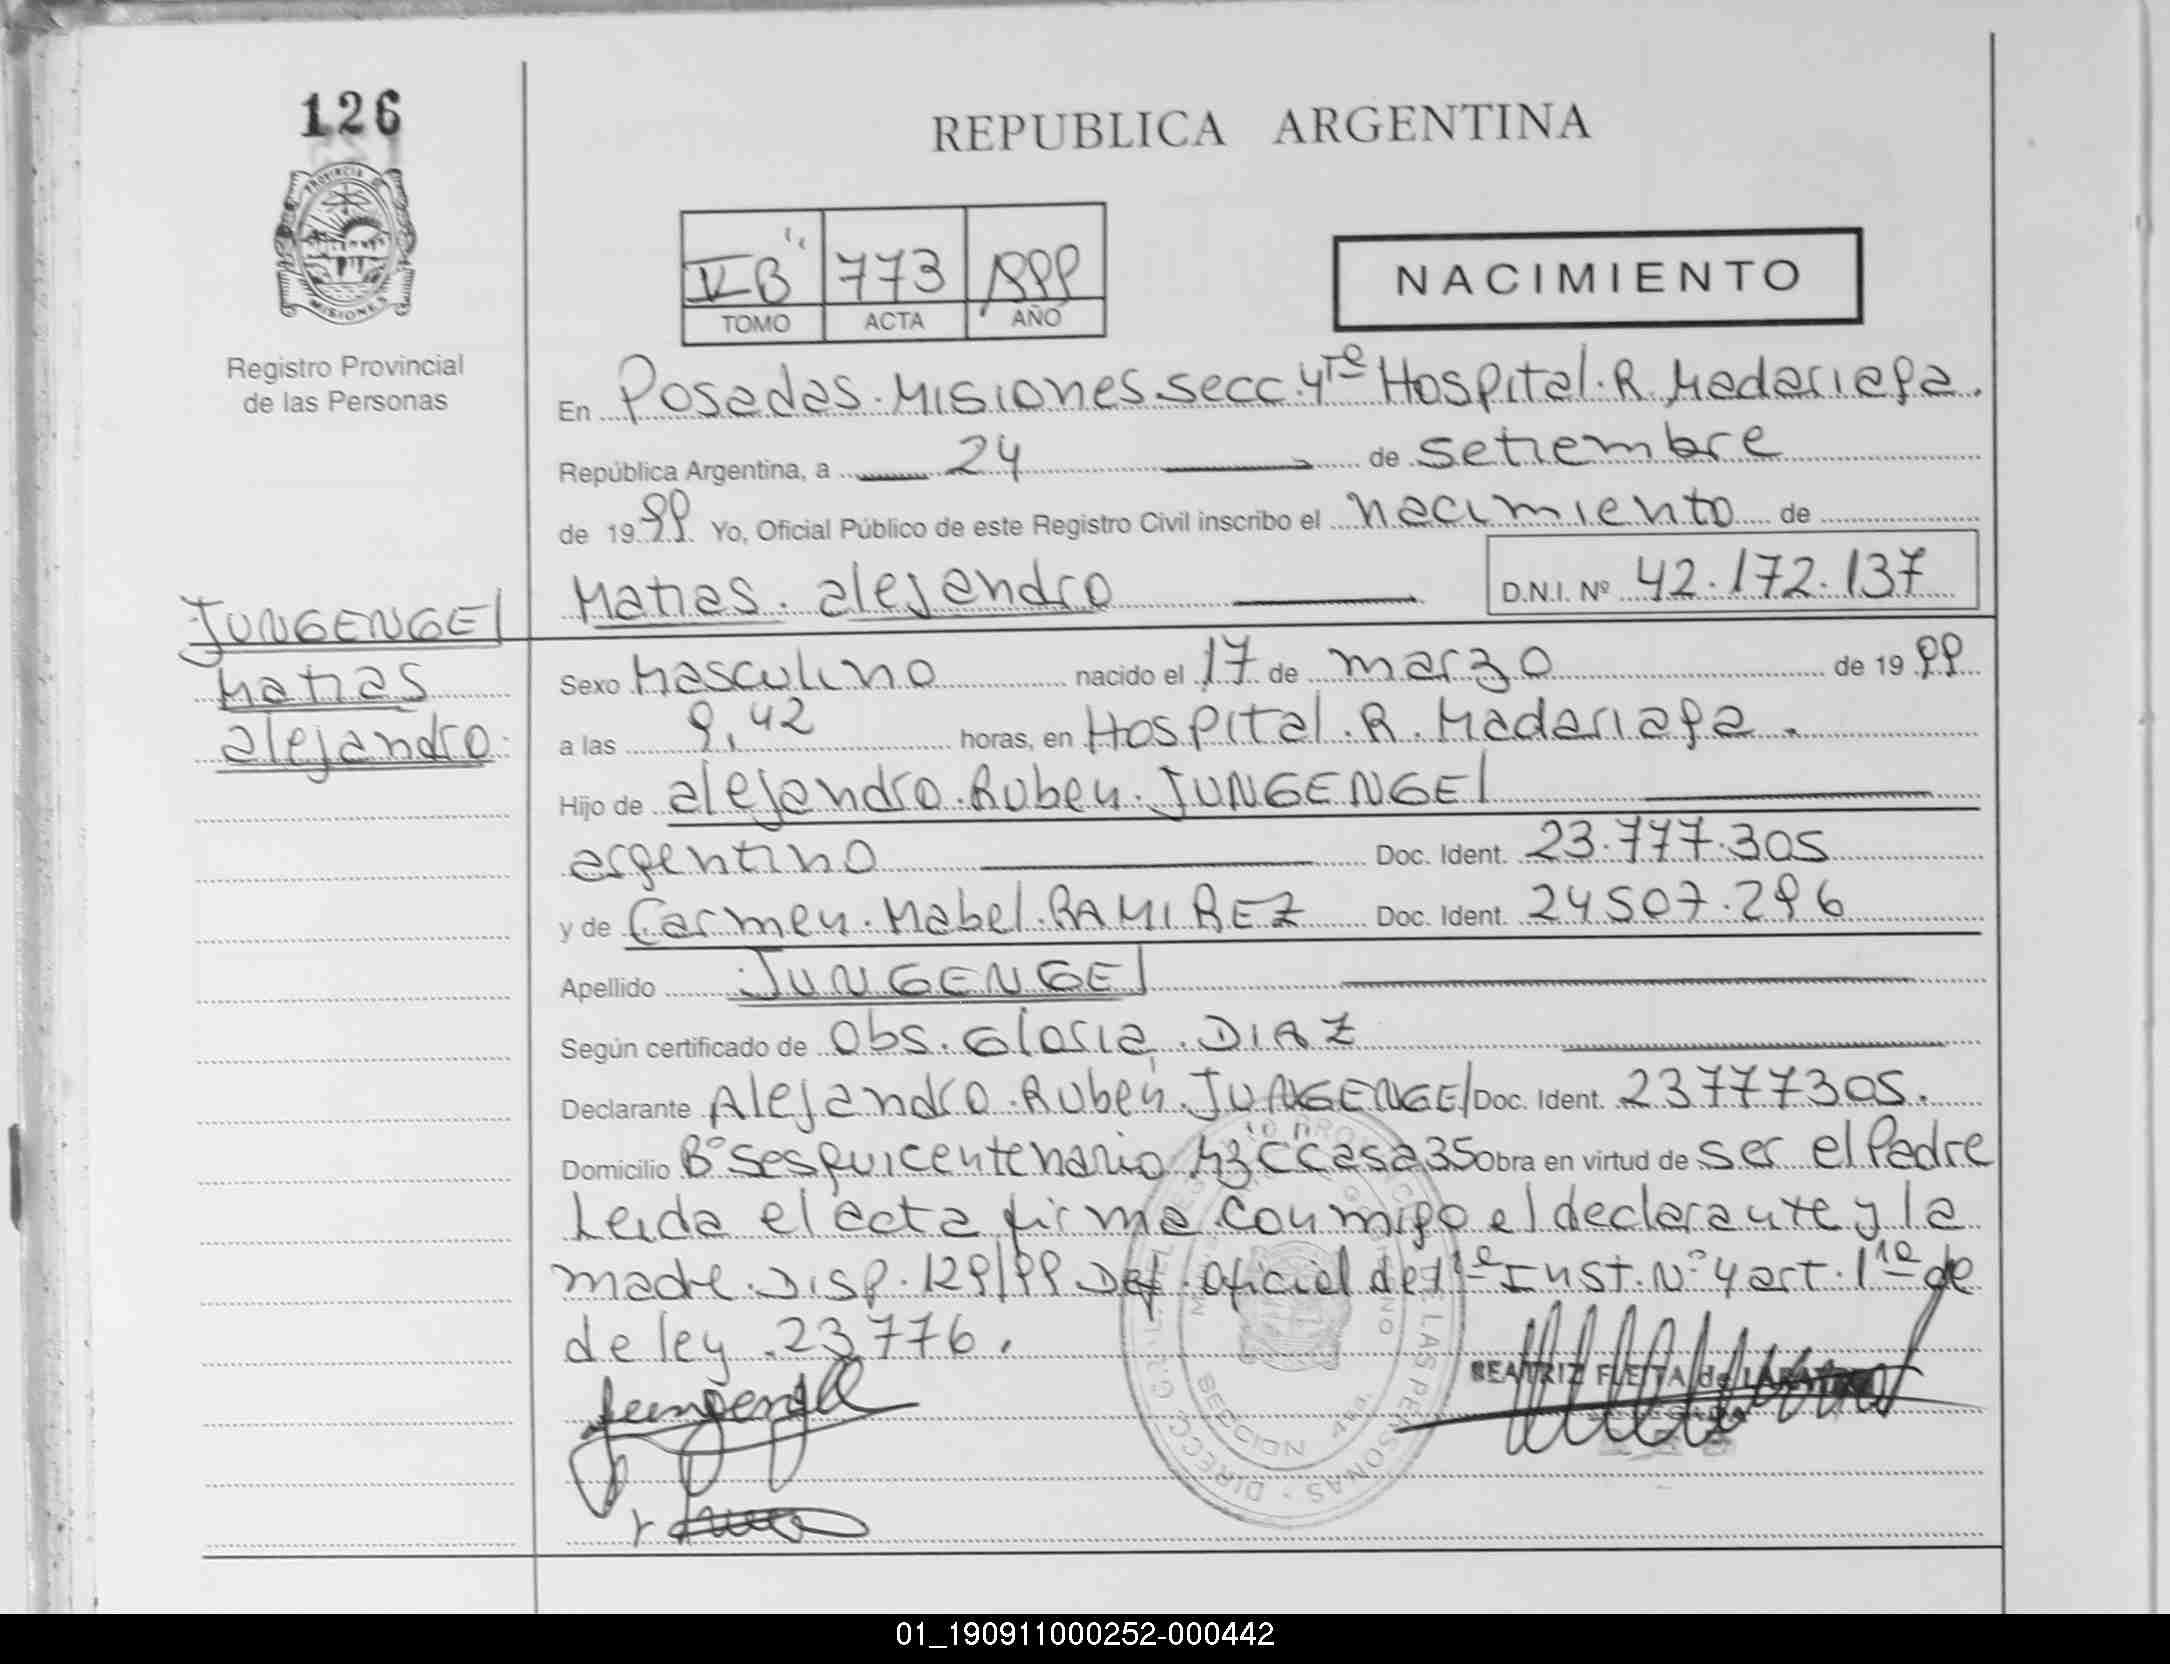 126
REPUBLICA ARGENTINA
773 1999
TOMO ACTA AÑO
NACIMIENTO
PROVINCIA DE MISIONES
Registro Provincial
de las Personas
En Posadas. Misiones. secc. 4ta Hospital. R. Madariaga.
República Argentina, a 24 de setiembre
de 1999 Yo, Oficial Público de este Registro Civil inscribo el nacimiento de
Matias. alejandro D.N.I. Nº 42.172.137
JUNGENGEl
Matias
alejandro
Sexo Masculino nacido el 17 de marzo de 1999
a las 9,42 horas, en Hospital. R. Madariaga.
Hijo de alejandro. Ruben. JUNGENGEl
argentino Doc. Ident. 23.777.305
y de Carmen. Mabel. RAMIREZ Doc. Ident. 24507.296
Apellido JUNGENGEl
Según certificado de Obs. Gloria. DIAZ
Declarante Alejandro. Ruben. JUNGENGEl Doc. Ident. 23777305.
Domicilio Bº Sesquicentenario casa 35 Obra en virtud de ser el Padre
Leida el acta firma conmigo el declarante y la
madre. Disp. 129/99 Def. Oficial de 1ra Inst. Nº 4 art. 11º de
de ley. 23776.
BEATRIZ FLEITA de
SECCION 4ta.
01_190911000252-000442